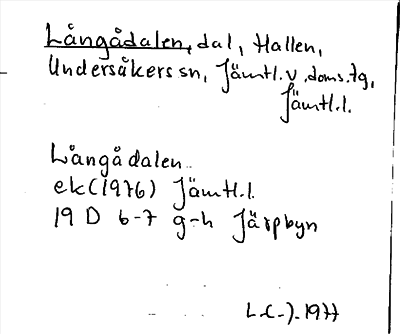 Långådalen, dal, Hallen,
Undersåkers sn, Jämtl. v. doms. tg,
Jämtl.l.
Långådalen
ek(1976) Jämtl.l.
19 D 6-7 g-h Järpbyn
L.C-).1977